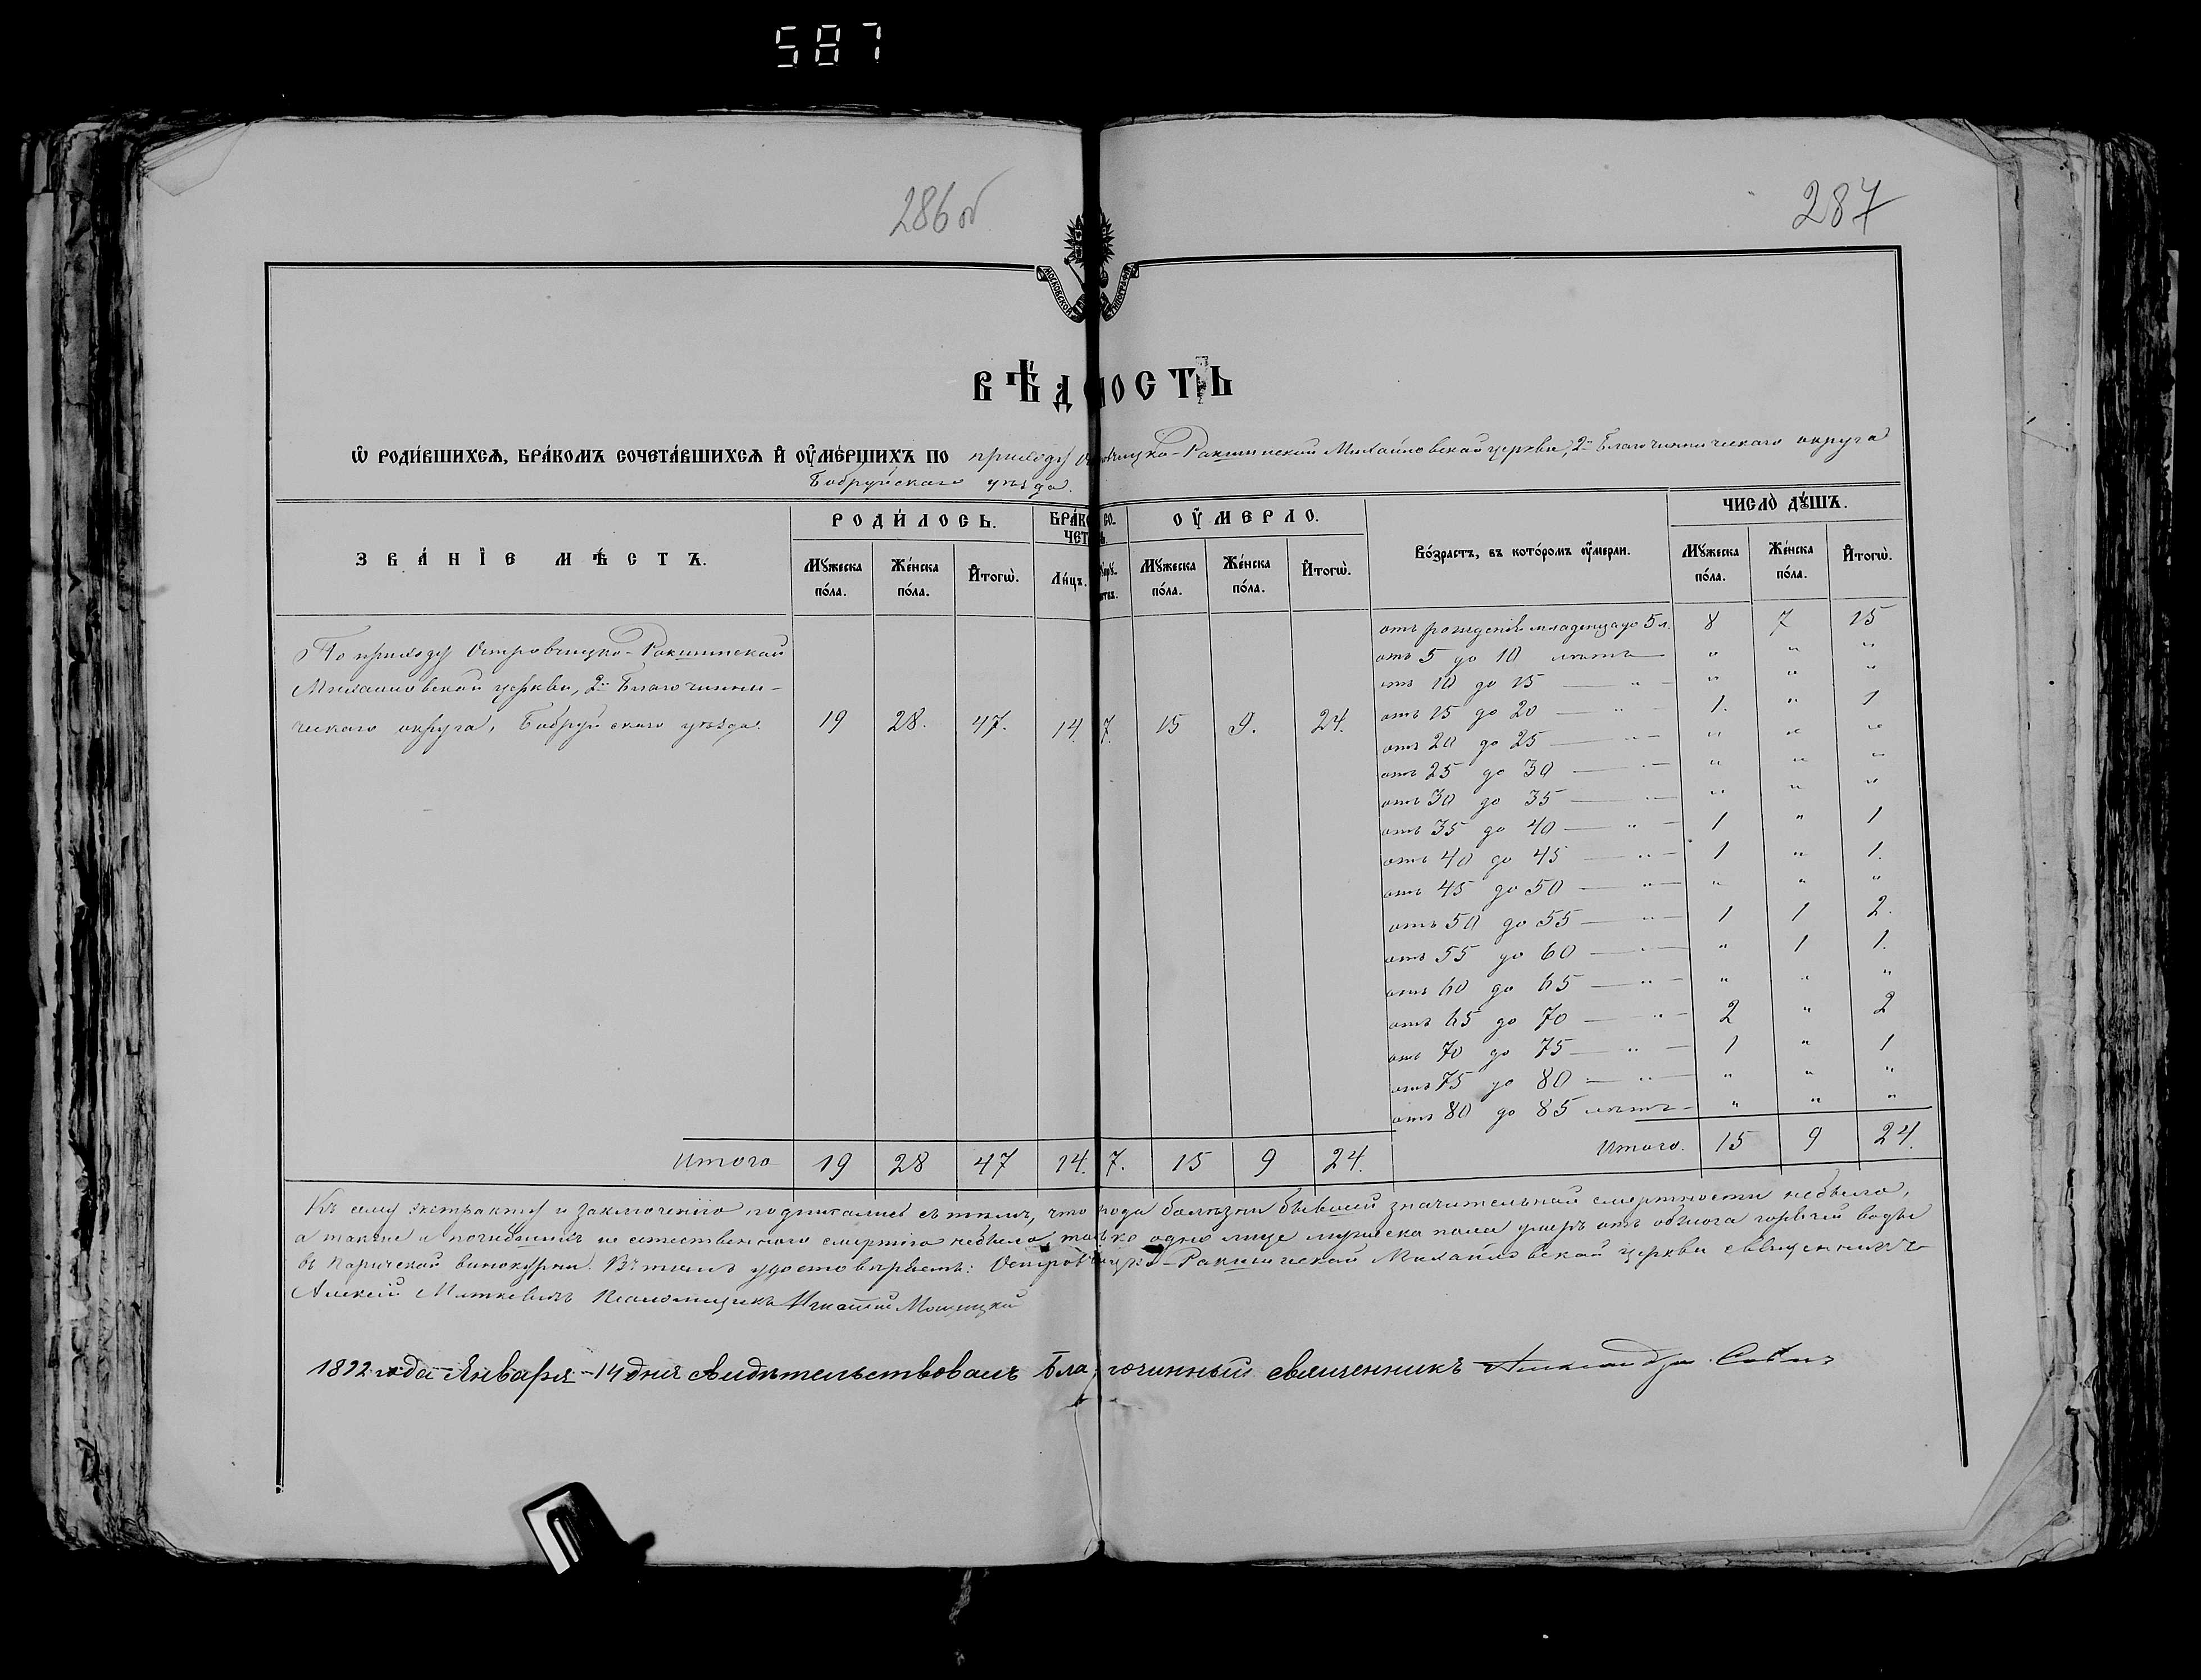 587
286 об
287
МОСКОВСКОЙ ТИПОГРАФІИ
ВѢДОМОСТЬ
Ѡ РОДИ́ВШИХСѦ, БРА́КОМЪ СОЧЕТА́ВШИХСѦ И҆ ОУ҆МЕ́РШИХЪ ПО приходу Островчицко-Ракшинской Михайловской церкви, 2го Благочинническаго округа
Бобруйскаго уѣзда.
ЗВА́НІЕ МѢ́СТЪ.
РОДИ́ЛОСЬ.
БРА́КОМЪ СО-
ЧЕТ
ОУ҆МЕРЛО.
Во́зрастъ, въ кото́ромъ оу҆́мерли.
ЧИСЛО̀ ДꙊ́ШЪ.
Мꙋ́жеска по́ла. Же́нска по́ла. И҆тогѡ̀. Ли́цъ. Мꙋ́жеска по́ла. Же́нска по́ла. И҆тогѡ̀. Мꙋ́жеска по́ла. Же́нска по́ла. И҆тогѡ̀.
По приходу Островчицко-Ракшинской
Михайловской церкви, 2го Благочинни-
ческаго округа, Бобруйскаго уѣзда. 19 28. 47. 14. 7. 15 9. 24.
отъ рожденія младенца до 5 л. 8 7 15
отъ 5 до 10 лѣтъ " " "
отъ 10 до 15 — " — " " "
отъ 15 до 20 — " — 1. " 1
отъ 20 до 25 — " — " " "
отъ 25 до 30 — " — " " "
отъ 30 до 35 — " — " " "
отъ 35 до 40 — " — 1 " 1
отъ 40 до 45 — " — 1 " 1.
отъ 45 до 50 — " — " " "
отъ 50 до 55 — " — 1 1 2.
отъ 55 до 60 — " — " 1 1.
отъ 60 до 65 — " — " " "
отъ 65 до 70 — " — 2 " 2
отъ 70 до 75 — " — 1 " 1
отъ 75 до 80 — " — " " "
отъ 80 до 85 лѣтъ — " " "
Итого 19 28 47 14. 7. 15 9 24.
Итого. 15 9 24.
Къ сему экстракту и заключенію подписались съ тѣмъ, что рода болѣзни бывшей значительной смертности небыло,
а также и погибшихъ не естественного смертію небыло, только одно лице мужеска пола умеръ отъ обжога горячей воды
въ Паричской винокурни. Въ томъ удостовѣряетъ: Островчицко-Ракшинской Михайловской церкви священникъ
Алексій Миткевичъ Псаломщикъ Игнатій
1892 года Января 14 дня свидѣтельствовалъ Благочинный священникъ Александръ